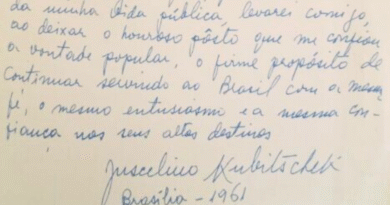 da minha vida pública, levarei comigo,
ao deixar o honroso pôsto que me confiou
a vontade popular, o firme propósito de
continuar servindo ao Brasil com a mesma
fé, o mesmo entusiasmo e a mesma con-
fiança nos seus altos destinos
Juscelino Kubitschek
Brasília - 1961